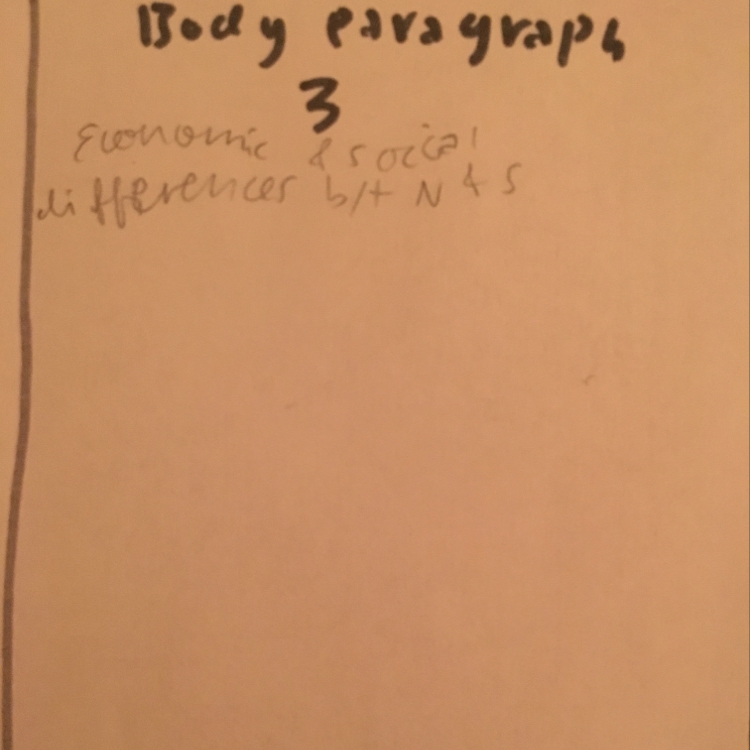 Body paragraph
3
Economic & social
differences b/t N & S